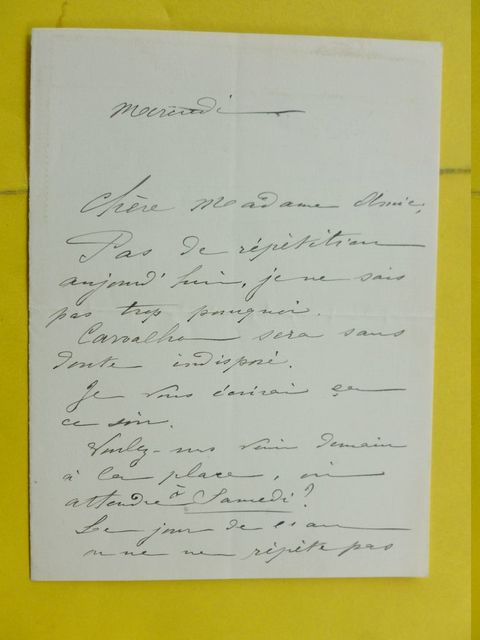 Mercredi
Chère Madame Amie,
Pas de répétition
aujourd'hui, je ne sais
pas trop pourquoi.
Carvalho sera sans
doute indisposé.
Je vous écrirai ça
ce soir.
Voulez-vous venir demain
à la place, ou
attendre à Samedi?
Le jour de l'an
on ne répète pas